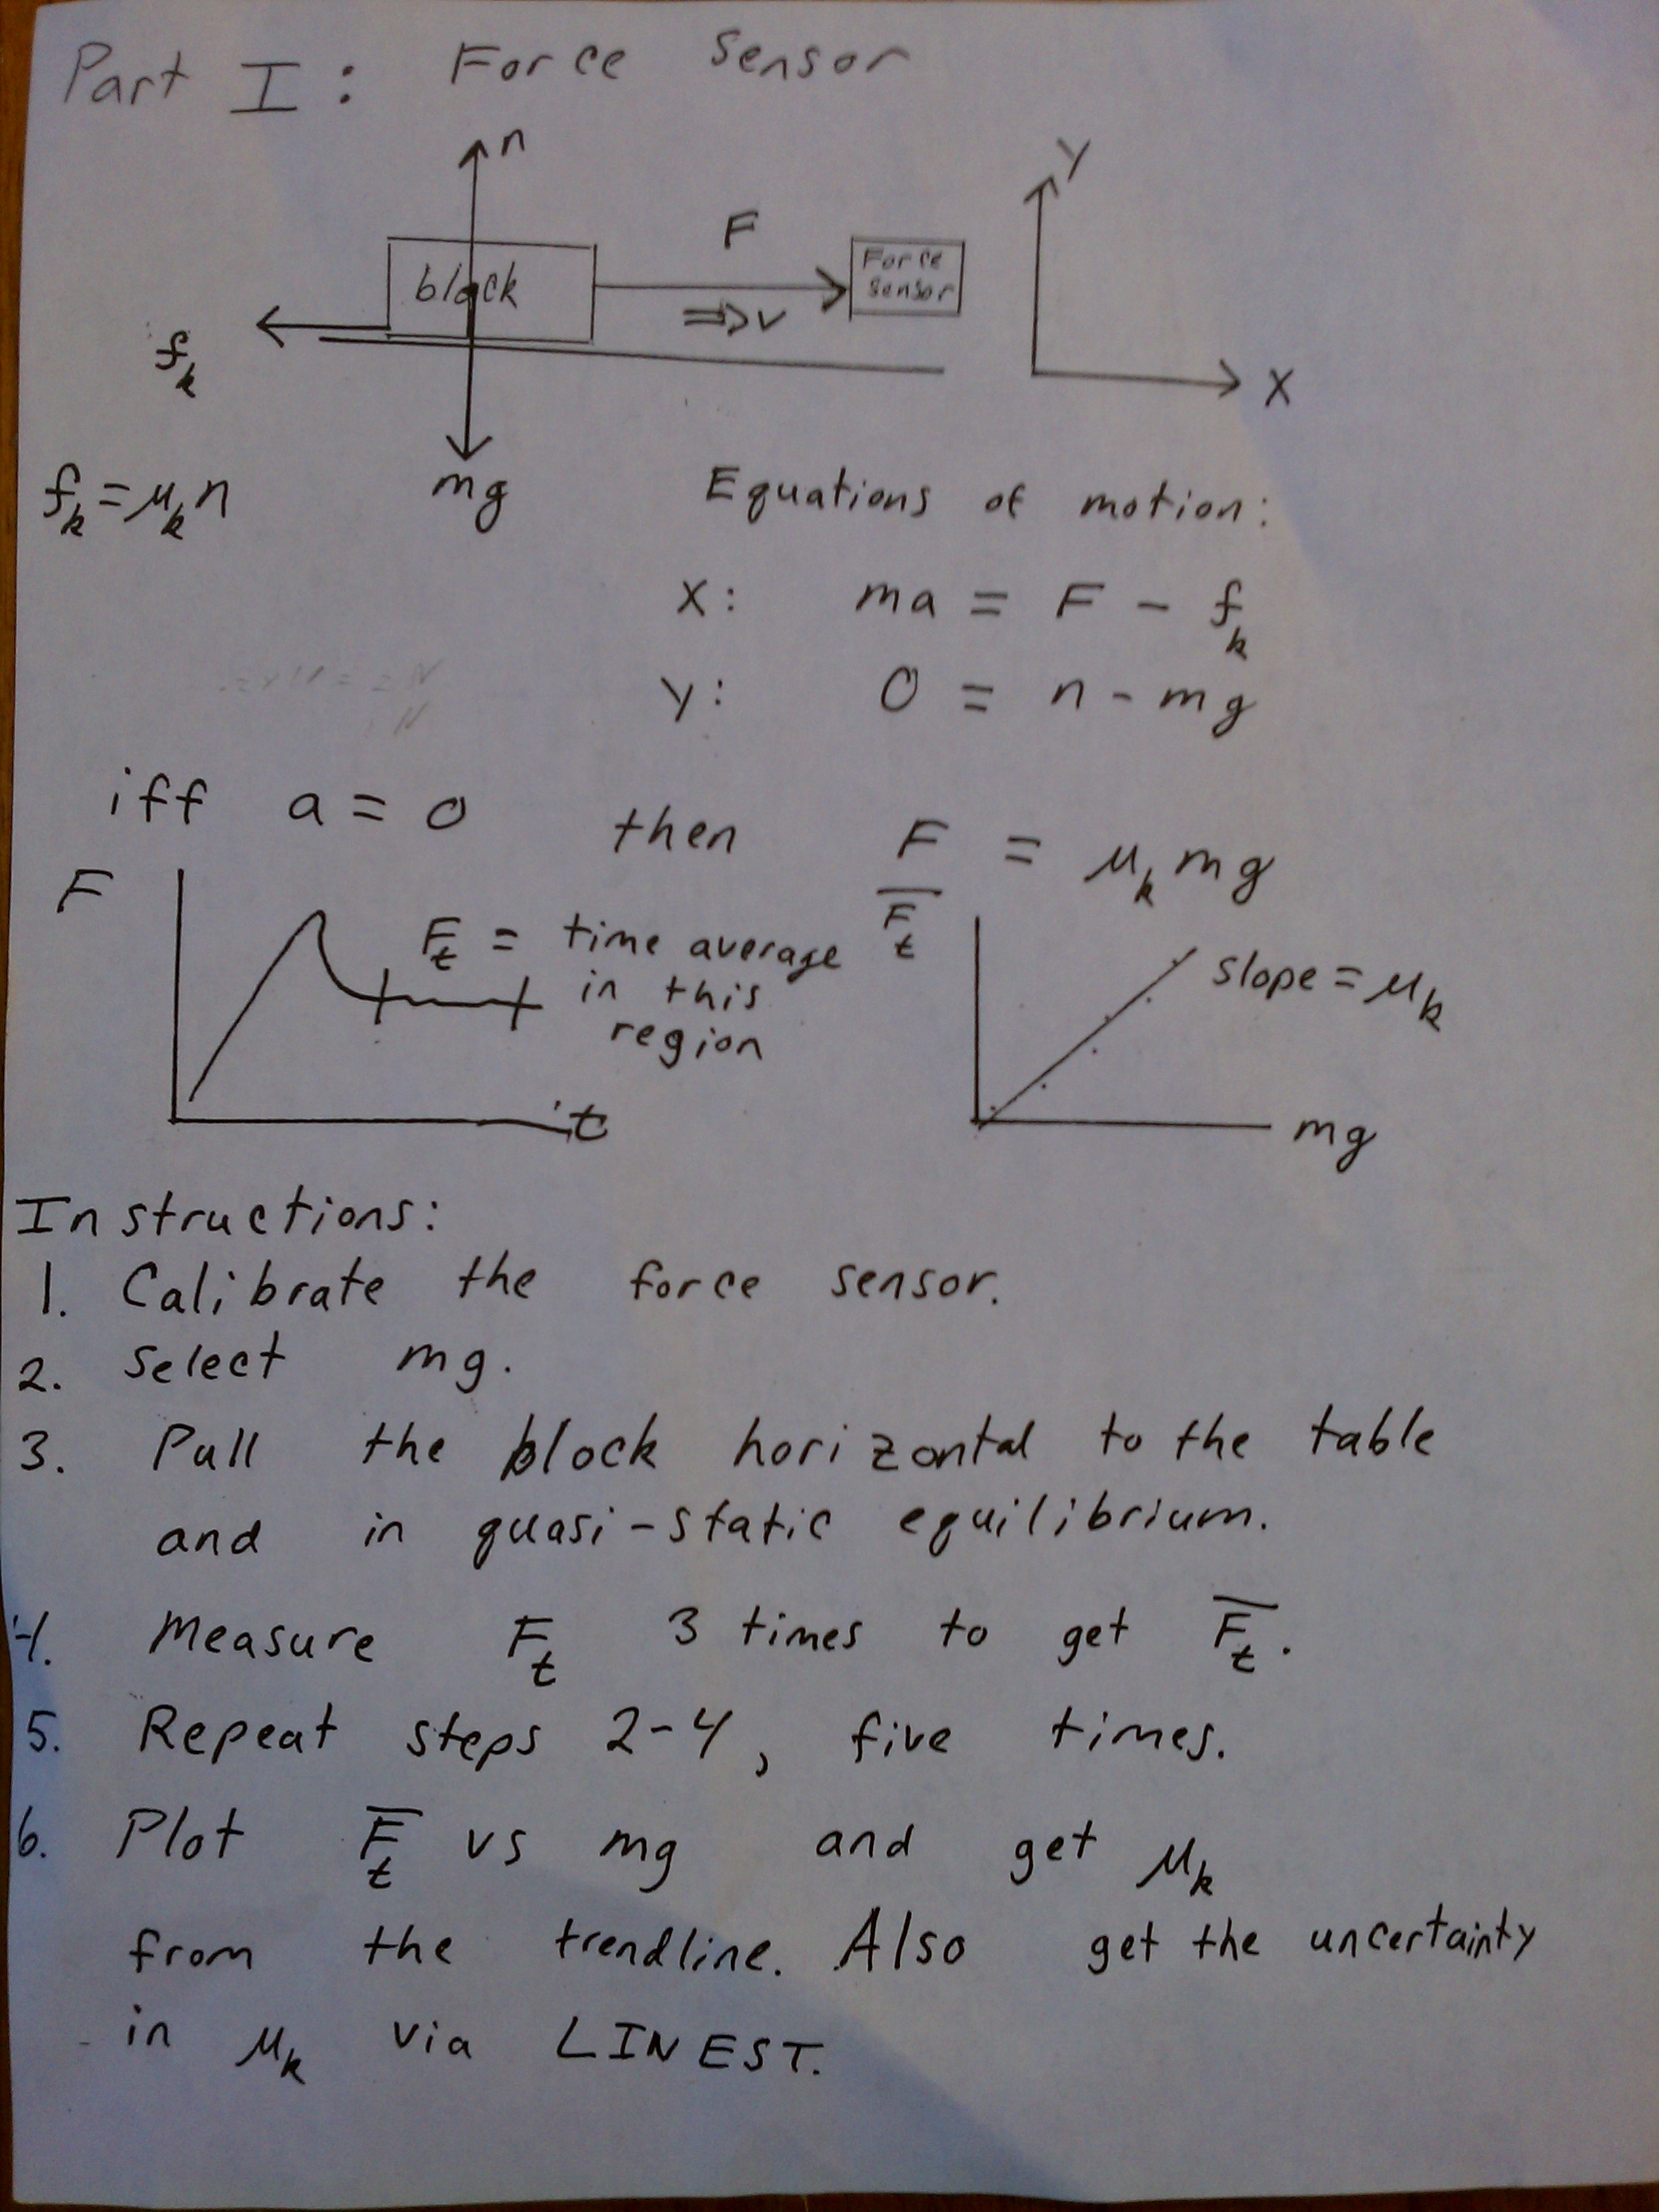 Part I: Force Sensor
n
Y
F
block
Force
Sensor
⇒v
f_k
X
mg
f_k = μ_k n
Equations of motion:
X: ma = F - f_k
Y: 0 = n - mg
iff a = 0 then F = μ_k mg
F
F_t = time average
in this
region
t
F̅_t
slope = μ_k
mg
Instructions:
1. Calibrate the force sensor.
2. Select mg.
3. Pull the block horizontal to the table
and in quasi-static equilibrium.
4. Measure F_t 3 times to get F̅_t.
5. Repeat steps 2-4, five times.
6. Plot F̅_t vs mg and get μ_k
from the trendline. Also get the uncertainty
in μ_k via LINEST.